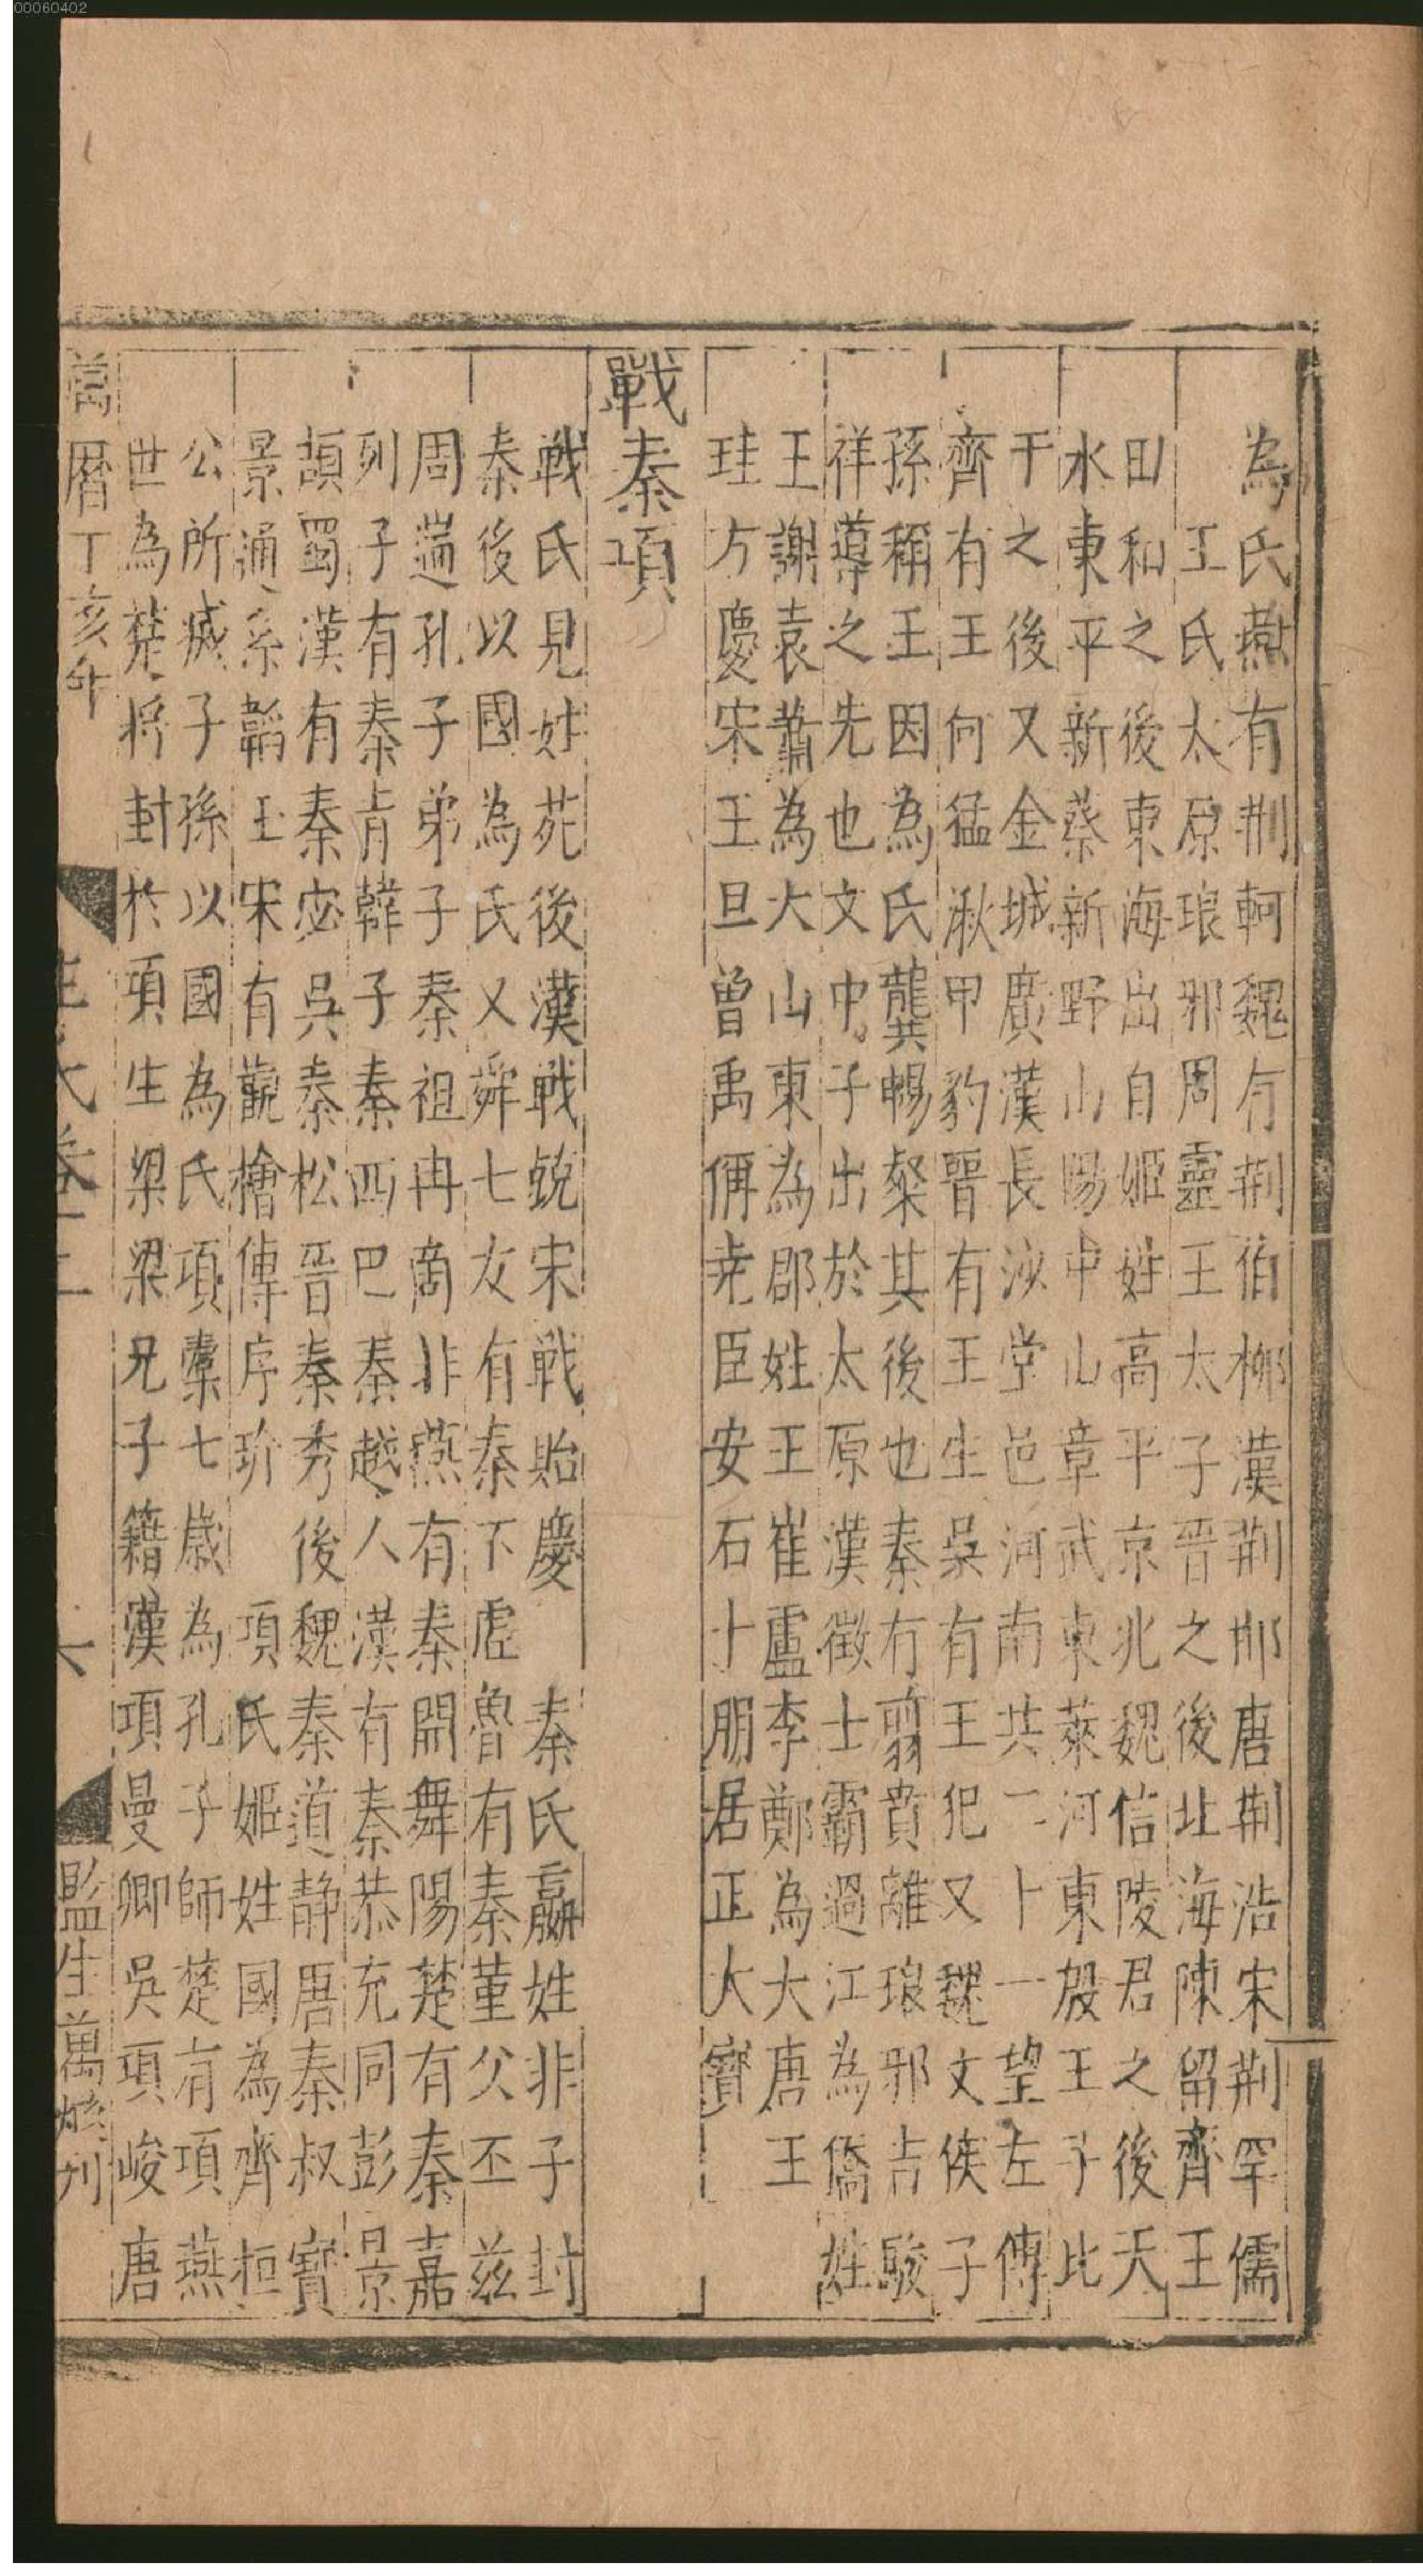 00060402
為氏燕有荆軻魏有荆伯栁漢荆邯唐荆浩宋荆罕儒
王氏太原琅邪周靈王太子晋之後北海陳留齊王
田和之後東海出自姬姓高平京兆魏信陵君之後天
水東平新蔡新野山陽中山章武東萊河東殷王子比
干之後又金城廣漢長沙堂邑河南共二十一望左傳
齊有王何猛湫甲豹晋有王生吳有王犯又魏文侯子
孫稱王因為氏龔暢粲其後也秦有翦賁離琅邪吉駿
祥導之先也文中子出於太原漢徵士霸過江為僑姓
王謝袁蕭為大山東為郡姓王崔盧李鄭為大唐王
珪方慶宋王旦曾禹偁尭臣安石十朋居正大寳
戰秦項
戰氏見姓苑後漢戰兢宋戰貽慶 秦氏嬴姓非子封
秦後以國為氏又舜七友有秦不虚魯有秦董父丕兹
周遄孔子弟子秦祖冉商非燕有秦開舞陽楚有秦嘉
列子有秦青韓子秦西巴秦越人漢有秦恭充同彭景
頡蜀漢有秦宓吳秦松晋秦秀後魏秦道静唐秦叔寳
景通系韜玉宋有觀檜傳序玠 項氏姬姓國為齊桓
公所㓕子孫以國為氏項槖七歲為孔子師楚有項燕
世為楚將封於項生梁梁兄子籍漢項曼卿吳項峻唐
萬曆丁亥年 姓氏卷十二 六 監生萬刋